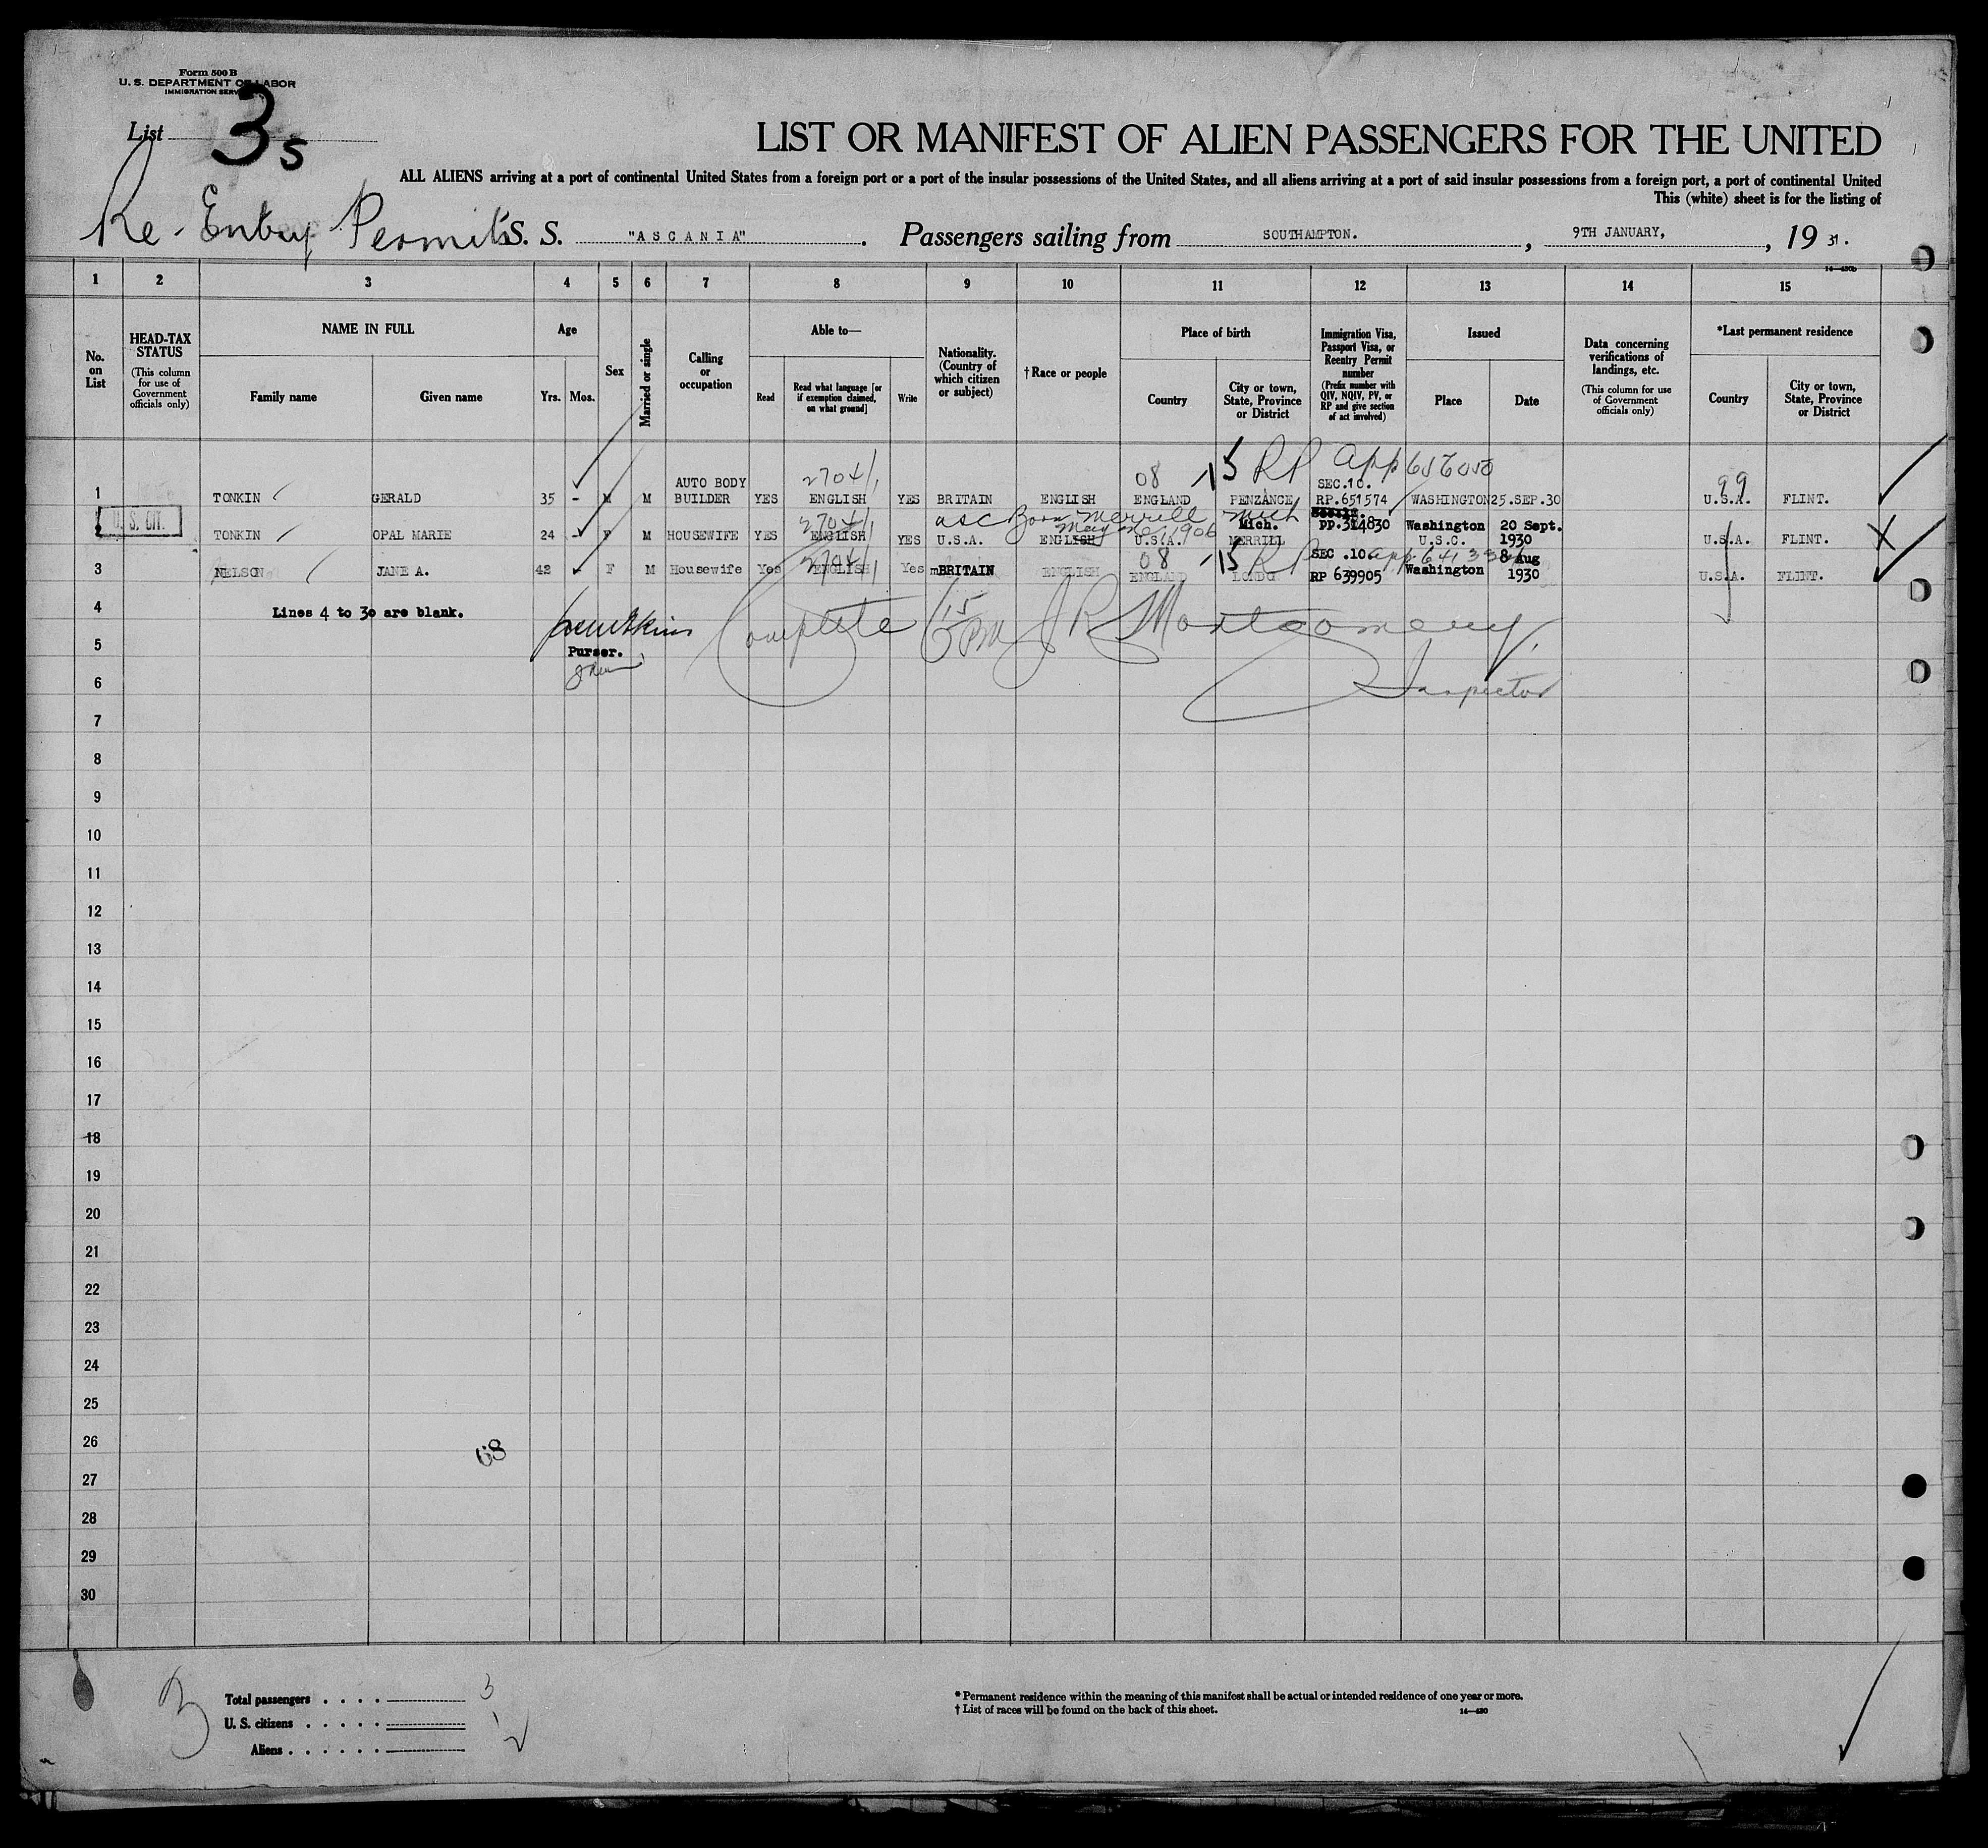 Form 500 B
U. S. DEPARTMENT OF LABOR
IMMIGRATION SERV
List 3 5
LIST OR MANIFEST OF ALIEN PASSENGERS FOR THE UNITED
ALL ALIENS arriving at a port of continental United States from a foreign port or a port of the insular possessions of the United States, and all aliens arriving at a port of said insular possessions from a foreign port, a port of continental United
This (white) sheet is for the listing of
Re-Entry Permits S. S. "ASCANIA". Passengers sailing from SOUTHAMPTON. , 9TH JANUARY, , 19 31.
1 2 3 4 5 6 7 8 9 10 11 12 13 14 15
No. on List
HEAD-TAX STATUS (This column for use of Government officials only)
NAME IN FULL
Family name Given name
Age
Yrs. Mos.
Sex
Married or single
Calling or occupation
Able to—
Read Read what language [or if exemption claimed, on what ground] Write
Nationality. (Country of which citizen or subject)
†Race or people
Place of birth
Country City or town, State, Province or District
Immigration Visa, Passport Visa, or Reentry Permit number (Prefix number with QIV, NQIV, PV, or RP and give section of act involved)
Issued
Place Date
Data concerning verifications of landings, etc. (This column for use of Government officials only)
*Last permanent residence
Country City or town, State, Province or District
27041 08 -15 RP App 656050 99
1 TONKIN GERALD 35 - M M AUTO BODY BUILDER YES ENGLISH YES BRITAIN ENGLISH ENGLAND PENZANCE SEC.10. RP.651574 WASHINGTON 25.SEP.30 U.S.A. FLINT.
U. S. CIT.
27041 usc Born Merrill Mich May 1906
TONKIN OPAL MARIE 24 - F M HOUSEWIFE YES ENGLISH YES U.S.A. ENGLISH U.S.A. MERRILL Mich. PP.314830 Washington U.S.C. 20 Sept. 1930 U.S.A. FLINT.
27041 08 -15 RP app
3 NELSON JANE A. 42 F M Housewife Yes ENGLISH Yes BRITAIN ENGLISH ENGLAND SEC .10 RP 639905 Washington 8 Aug 1930 U.S.A. FLINT.
4 Lines 4 to 30 are blank.
Complete 15 PM J R Montgomery
5 Purser.
6 Inspector
7
8
9
10
11
12
13
14
15
16
17
18
19
20
21
22
23
24
25
26 68
27
28
29
30
3
Total passengers . . . . 3
U. S. citizens . . . . . 1
Aliens . . . . . . 2
* Permanent residence within the meaning of this manifest shall be actual or intended residence of one year or more.
† List of races will be found on the back of this sheet. 14—430